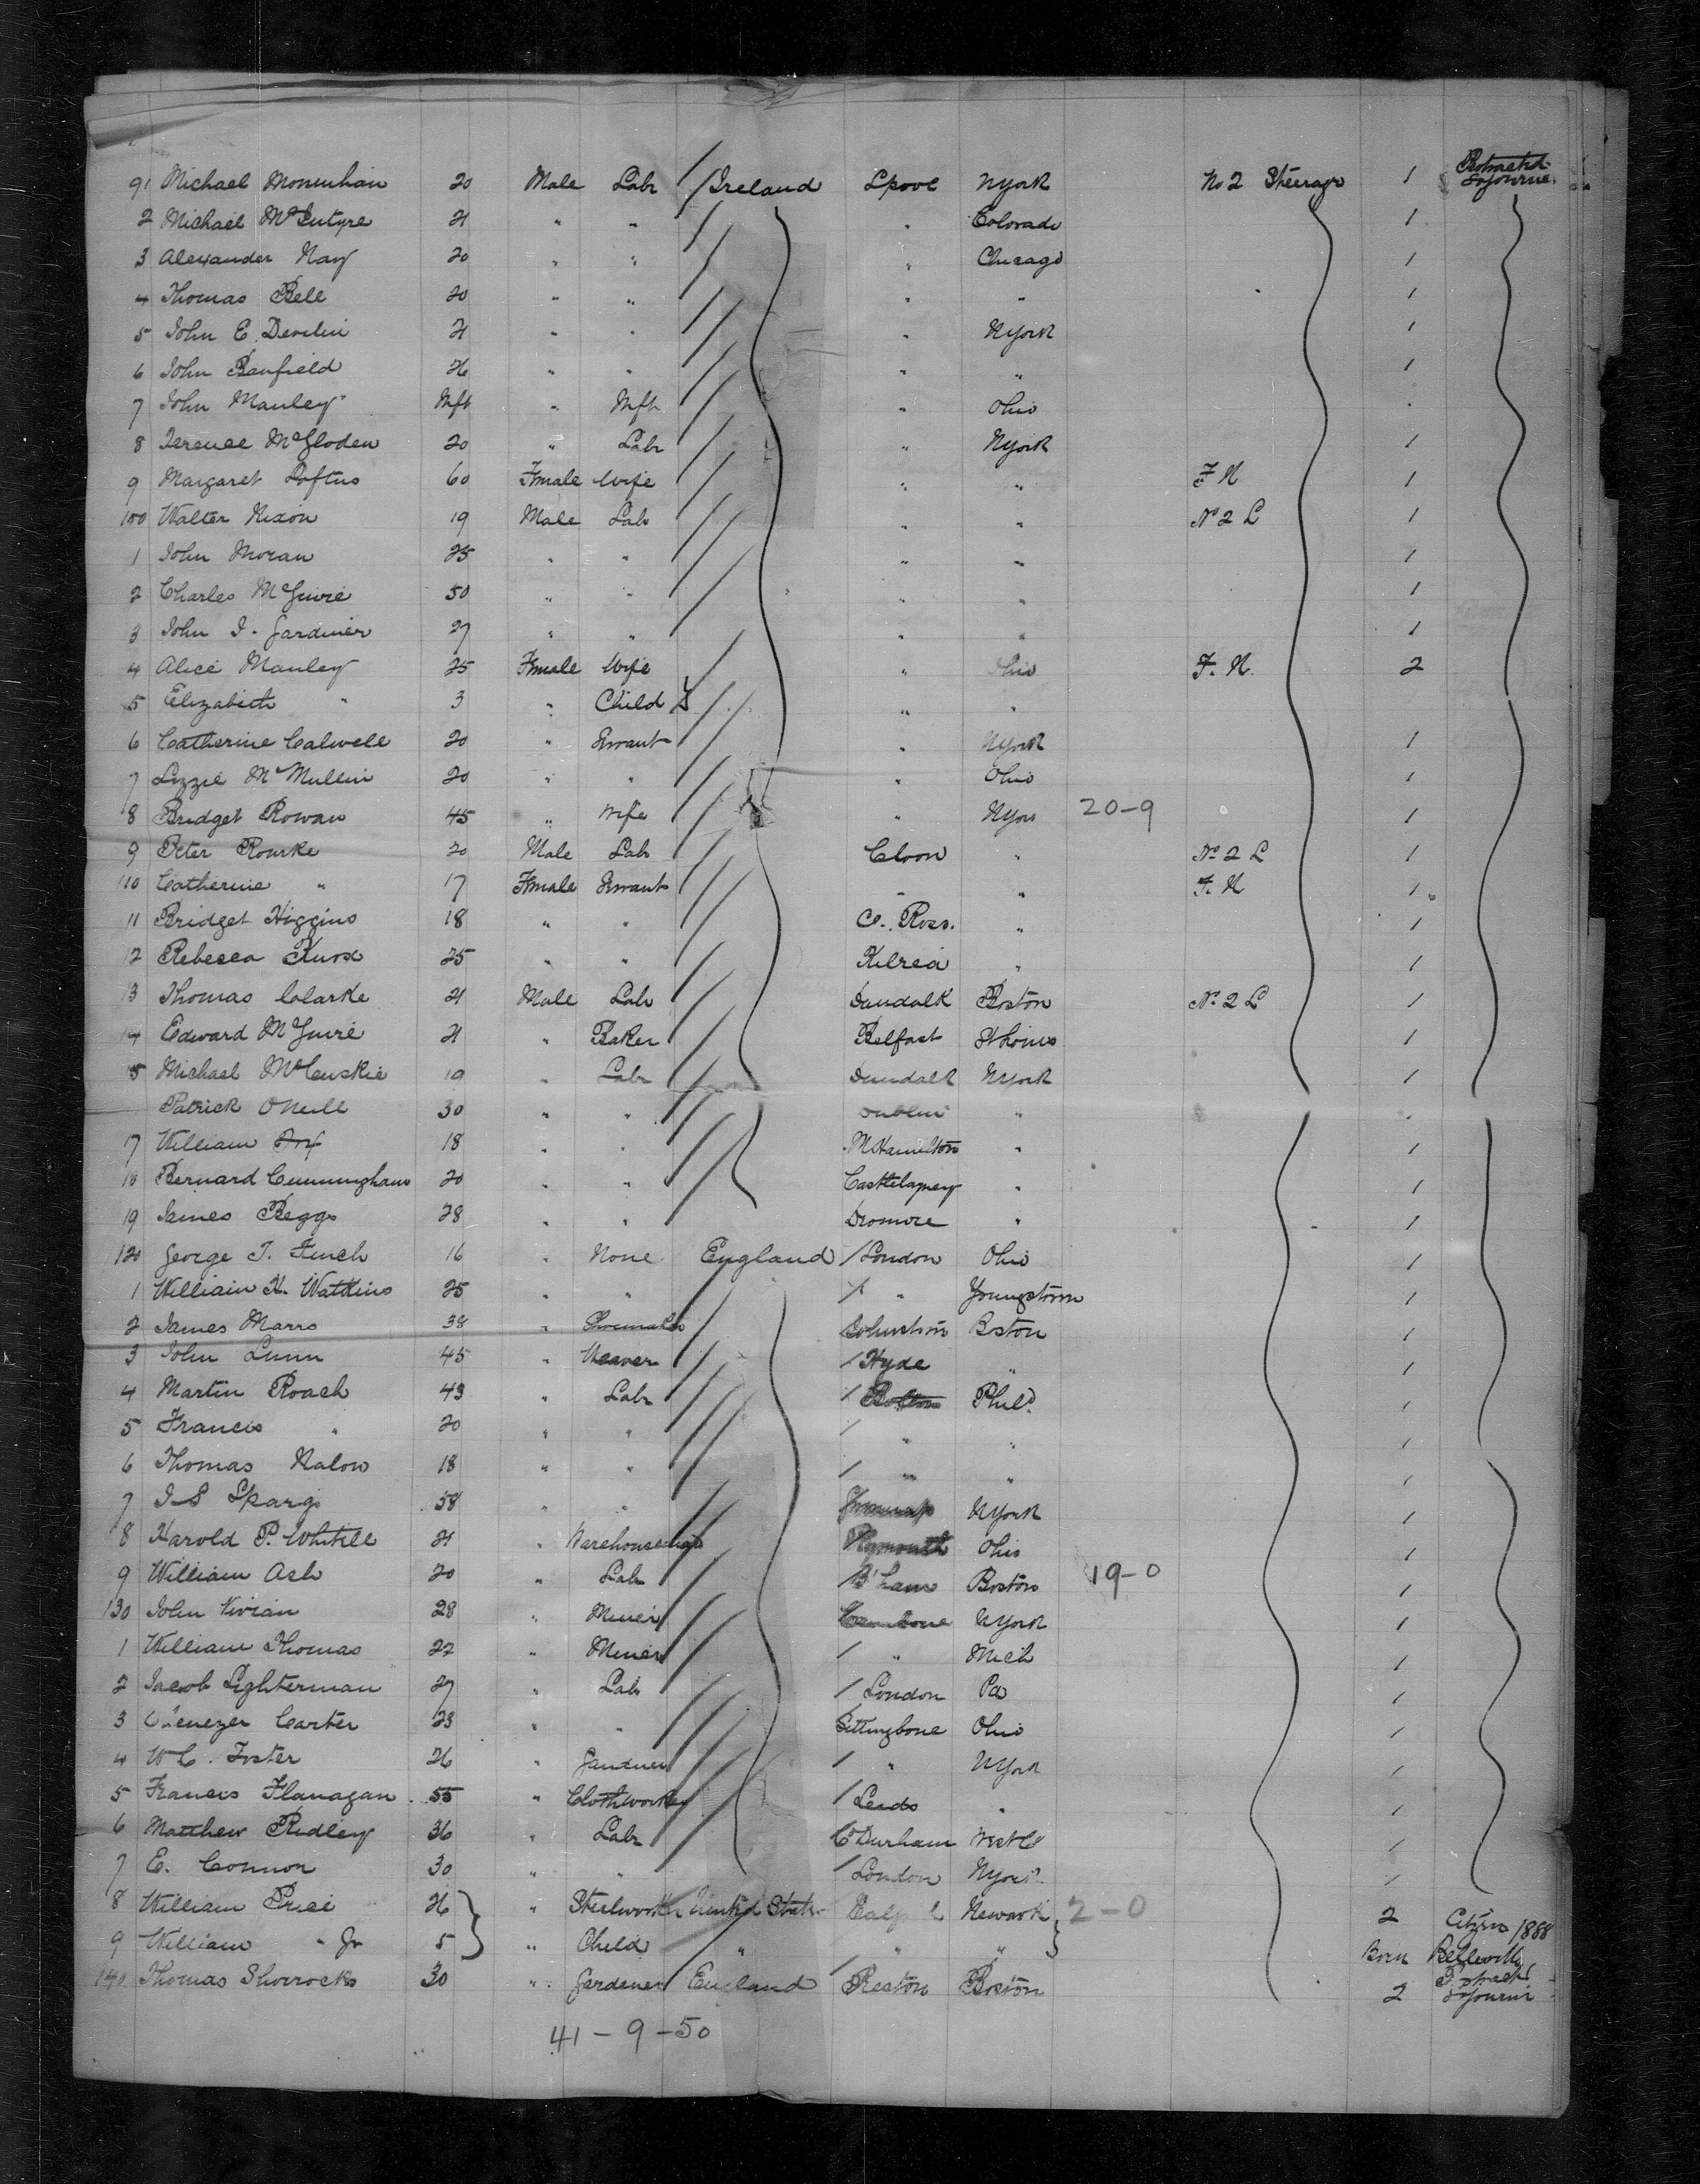 91 Michael Monenhan 20 Male Labr Ireland Lpool NYork No 2 Steerage 1 Protracted Sojourne
2 Michael McIntyre 21 " " " Colorado 1
3 Alexander Nay 20 " " " Chicago 1
4 Thomas Bell 20 " " " " 1
5 John E. Devilin 21 " " " NYork 1
6 John Banfield 26 " " " " 1
7 John Manley Inft " Inft " Ohio
8 Terence McGloden 20 " Labr " NYork 1
9 Margaret Loftus 60 Female Wife " " F. H 1
100 Walter Nixon 19 Male Lab " " No 2 L 1
1 John Moran 25 " " " " 1
2 Charles McGuire 50 " " " " 1
3 John J. Gardiner 27 " " " " 1
4 Alice Manley 25 Female Wife " Ohio F. H. 2
5 Elizabeth " 3 " Child " "
6 Catherine Calwell 20 " Srvant " NYork 1
7 Lizzie McMullin 20 " " " Ohio 1
8 Bridget Rowan 45 " Wife " NYork 20-9 1
9 Peter Rourke 20 Male Lab Cloon " No 2 L 1
110 Catherine " 17 Female Srvant " " F. H 1
11 Bridget Higgins 18 " " Co. Ross. " 1
12 Rebecca Knox 25 " " Kilrea " 1
13 Thomas Clarke 21 Male Lab Dundalk Boston No 2 L 1
14 Edward McGuire 21 " Baker Belfast St Louis 1
15 Michael McCuskie 19 " Labr Dundalk NYork 1
Patrick ONeill 30 " " Dublin "
17 William Fox 18 " " M Hamilton " 1
18 Bernard Cunningham 20 " " " 1
19 James Beggs 28 " " Dromore " 1
120 George T. Finch 16 " None England London Ohio 1
1 William H. Watkins 25 " " " Youngstown 1
2 James Marrs 38 " Shoemaker Johnston Boston 1
3 John Lunn 45 " Weaver Hyde " 1
4 Martin Roach 43 " Labr Bolton Phild. 1
5 Francis " 20 " " " " 1
6 Thomas Nalon 18 " " " " 1
7 J S Spargo 58 " " NYork 1
8 Harold P. Whitell 21 " Warehouseman Plymouth Ohio 1
9 William Ash 20 " Lab B'ham Boston 19-0 1
130 John Vivian 28 " Miner Cambone NYork 1
1 William Thomas 22 " Miner " Mich 1
2 Jacob Lighterman 27 " Lab London Pa 1
3 Ebenezer Carter 23 " " Sittingbone Ohio 1
4 W C. Foster 26 " Gardner " NYork 1
5 Francis Flanagan 55 " Clothworker Leeds " 1
6 Matthew Ridley 36 " Labr Co Durham 1
7 E. Connor 30 " " London NYork 1
8 William Price 26 " Steelworker United States Newark 2-0 2 Citizens 1888
9 William " Jr 5 " Child " " " Born Belleville
140 Thomas Shorrocks 30 " Gardener England Preston Boston 2 Protracted Sojourne
41-9-50